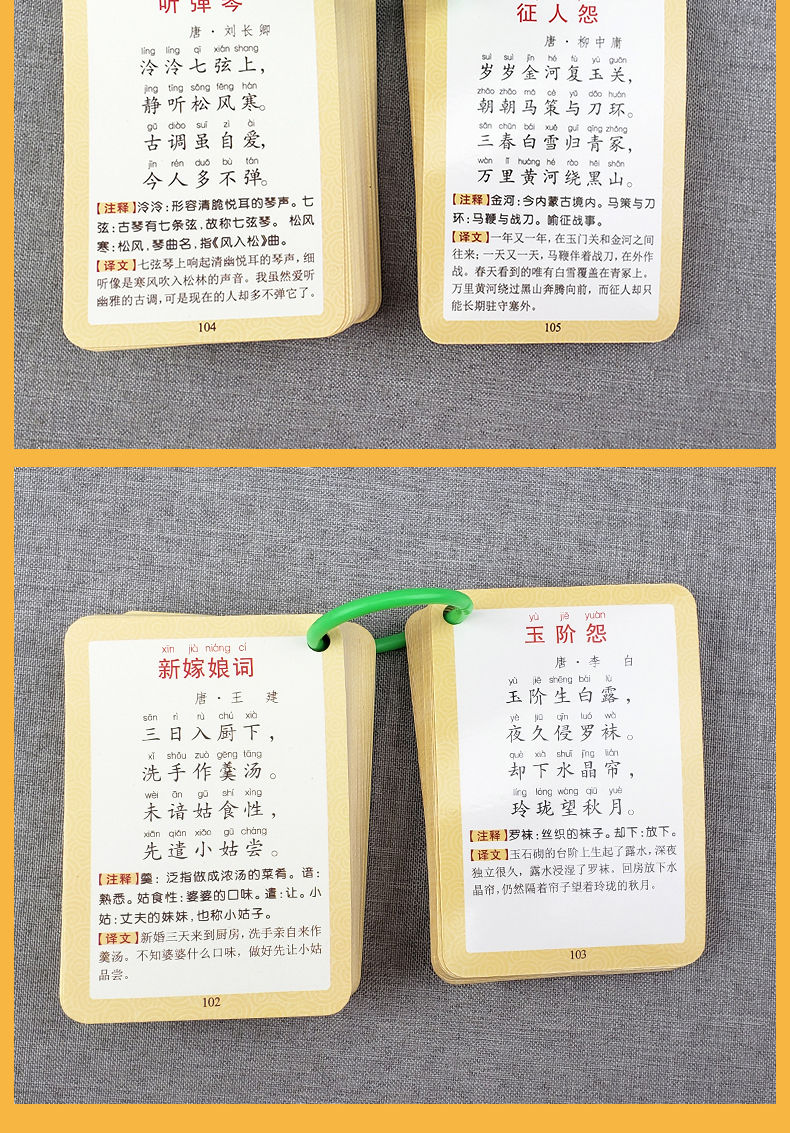 听弹琴
唐·刘长卿
líng líng qī xián shang
泠泠七弦上，
jìng tīng sōng fēng hán
静听松风寒。
gǔ diào suī zì ài
古调虽自爱，
jīn rén duō bù tán
今人多不弹。
【注释】泠泠：形容清脆悦耳的琴声。七
弦：古琴有七条弦，故称七弦琴。 松风
寒：松风，琴曲名，指《风入松》曲。
【译文】七弦琴上响起清幽悦耳的琴声，细
听像是寒风吹入松林的声音。我虽然爱听
幽雅的古调，可是现在的人却多不弹它了。
104
征人怨
唐·柳中庸
suì suì jīn hé fù yù guān
岁岁金河复玉关，
zhāo zhāo mǎ cè yǔ dāo huán
朝朝马策与刀环。
sān chūn bái xuě guī qīng zhǒng
三春白雪归青冢，
wàn lǐ huáng hé rào hēi shān
万里黄河绕黑山。
【注释】金河：今内蒙古境内。马策与刀
环：马鞭与战刀。喻征战事。
【译文】一年又一年，在玉门关和金河之间
往来；一天又一天，马鞭伴着战刀，在外作
战。春天看到的唯有白雪覆盖在青冢上。
万里黄河绕过黑山奔腾向前，而征人却只
能长期驻守塞外。
105
xīn jià niáng cí
新嫁娘词
唐·王 建
sān rì rù chú xià
三日入厨下，
xǐ shǒu zuò gēng tāng
洗手作羹汤。
wèi ān gū shí xìng
未谙姑食性，
xiān qiǎn xiǎo gū cháng
先遣小姑尝。
【注释】羹：泛指做成浓汤的菜肴。谙：
熟悉。姑食性：婆婆的口味。遣：让。小
姑：丈夫的妹妹，也称小姑子。
【译文】新婚三天来到厨房，洗手亲自来作
羹汤。不知婆婆什么口味，做好先让小姑
品尝。
102
yù jiē yuàn
玉阶怨
唐·李 白
yù jiē shēng bái lù
玉阶生白露，
yè jiǔ qīn luó wà
夜久侵罗袜。
què xià shuǐ jīng lián
却下水晶帘，
líng lóng wàng qiū yuè
玲珑望秋月。
【注释】罗袜：丝织的袜子。却下：放下。
【译文】玉石砌的台阶上生起了露水，深夜
独立很久，露水浸湿了罗袜。回房放下水
晶帘，仍然隔着帘子望着玲珑的秋月。
103